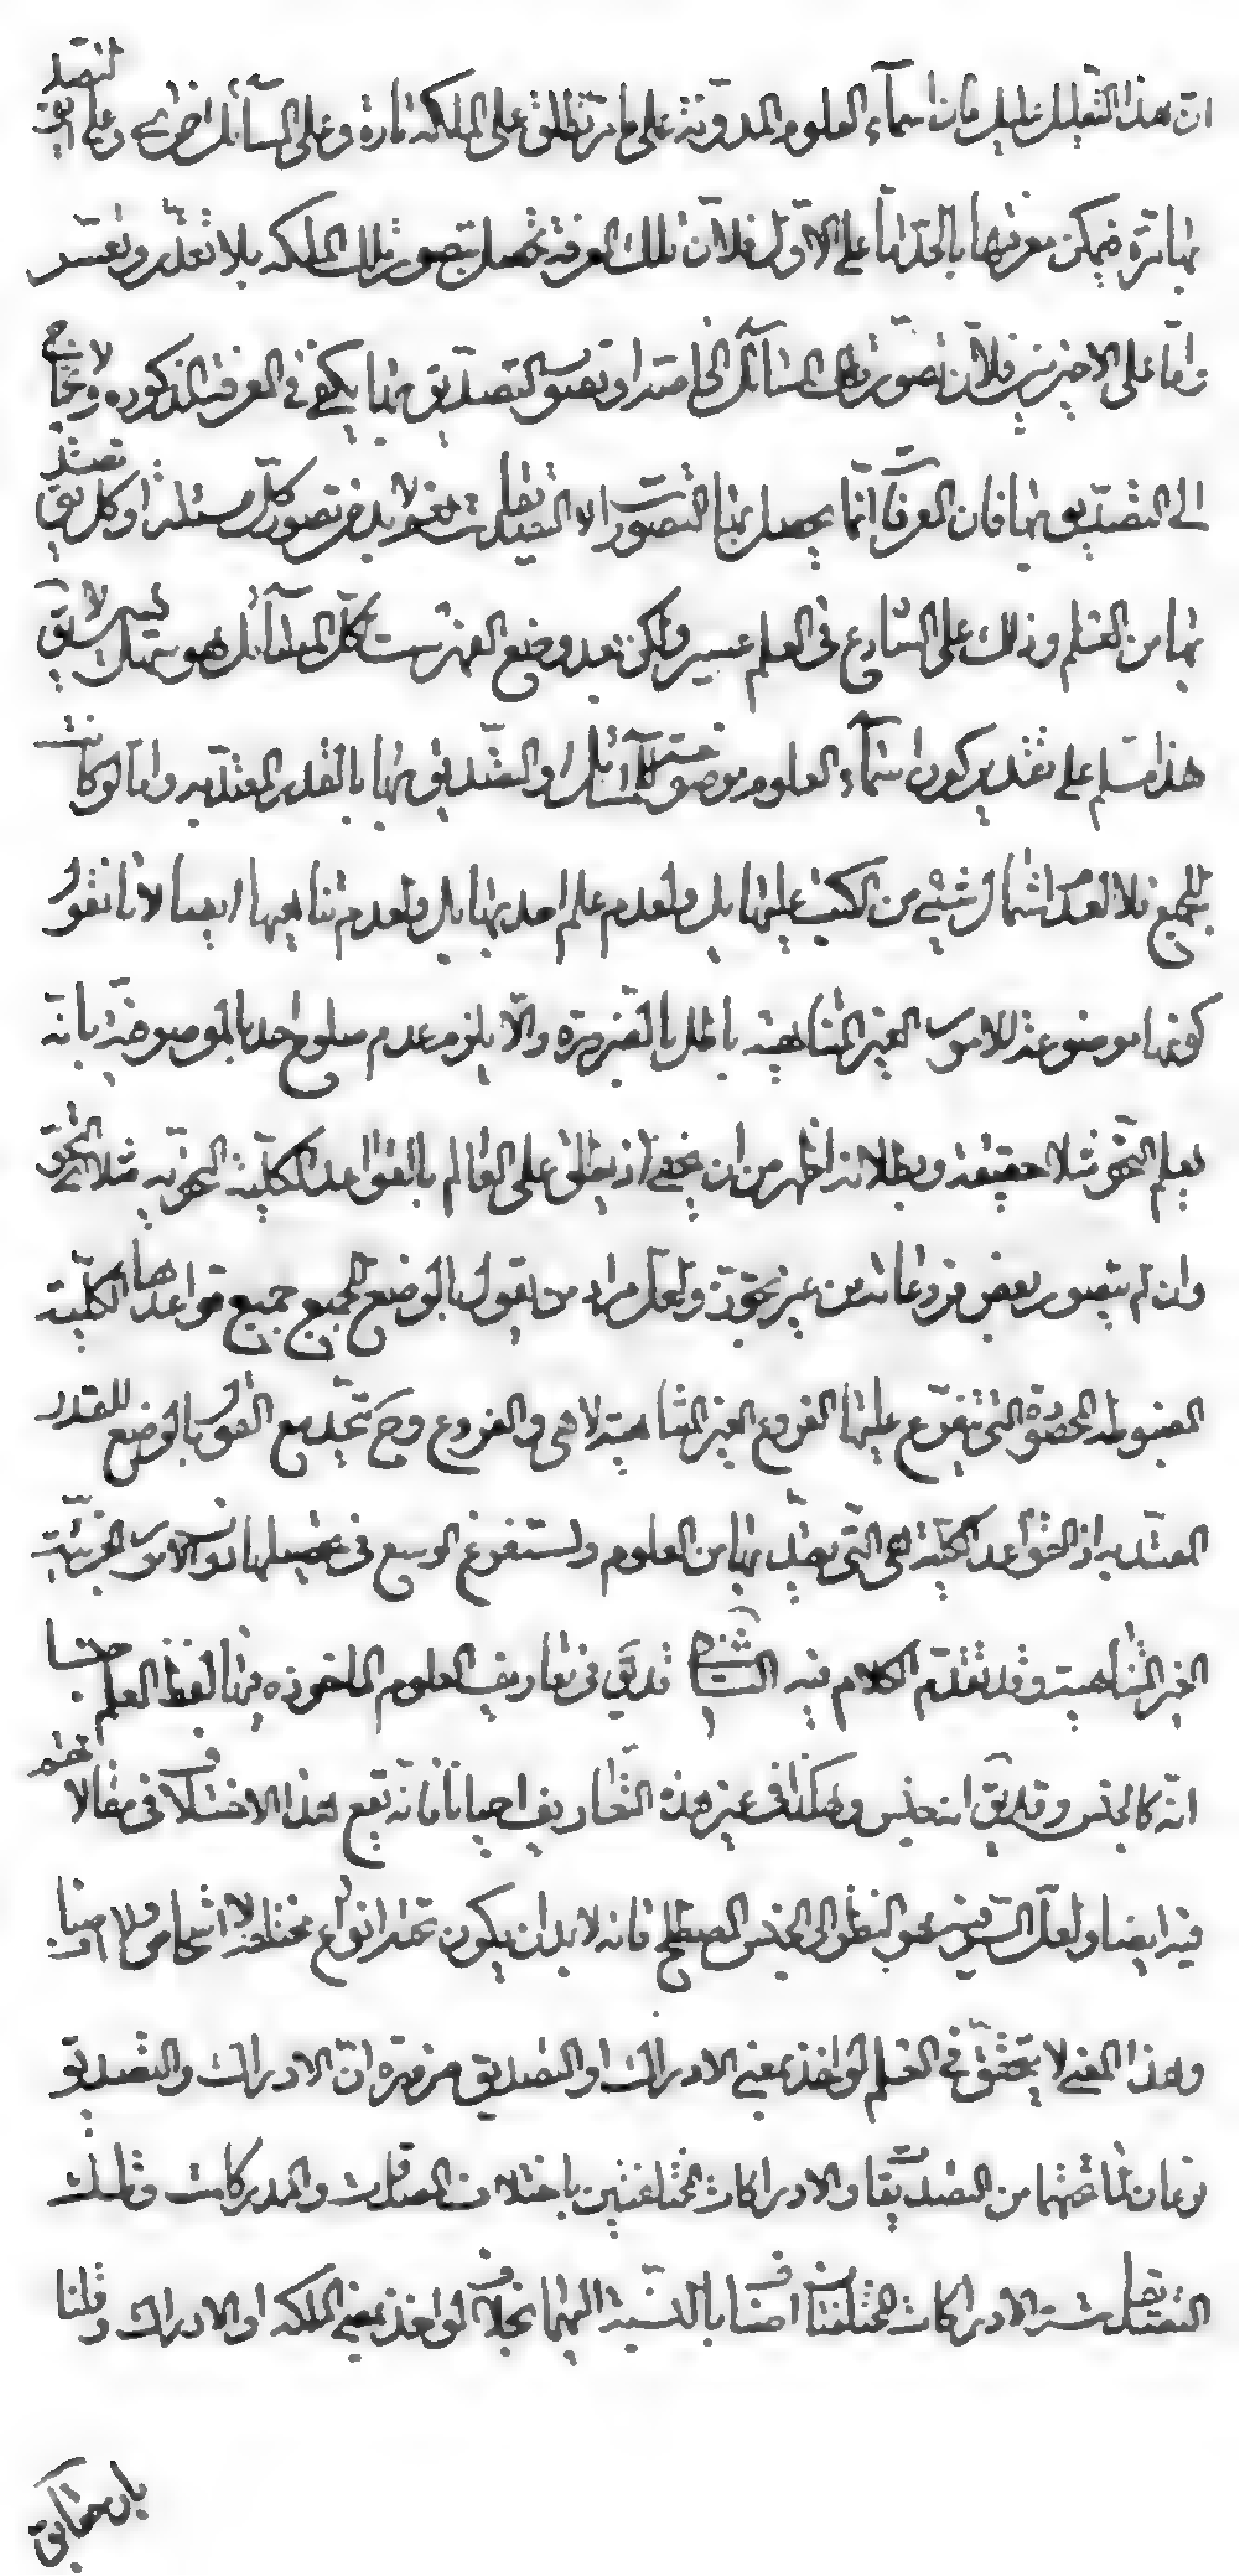 ان هذا التعليل عليل فان اسماء العلوم المدونة على ما مر تطلق على الملكة تارة وعلى المسائل اخرى وعلى التصديق
بها مرة فيمكن معرفتها بالحد اما على الاول فلان تلك المعرفة تحصل بتصور تلك الملكة بلا تعذر وتعسر
واما على الاخيرين فلان تصور تلك المسائل الخاصة او تصور التصديق بها يكفى فى المعرفة المذكوره ولا يحتاج
الى التصديق بها فان المعرفات انما يحصل بها التصورات لا التصديقات نعم لا بد من تصور كل مسئلة او كل تصديق
بها من العلم وذلك على الشارع فى العلم عسير ولكن بعد وضع الفهرست لكل المسائل هو سهل لا يقال
هذا مسلم على تقدير كون اسماء العلوم موضوعة للمسائل او التصديق بها بالقدر المعتد به واما لو كانت
للجميع فلا لعدم اشتمال شىء من الكتب عليها بل ولعدم علم احد بها بل ولعدم تناهيها ايضا لانا نقول
كونها موضوعة للامور الغير المتناهية باطل بالضرورة والا يلزم عدم صلوح احد بالموصوفية بانه
يعلم النحو مثلا حقيقة وبطلانه اظهر من ان يخفى اذ يطلق على العالم بالقواعد الكلية النحوية مثلا النحوى
وان لم يتصور بعض فروعاته من غير تجوز ولعل مراد من يقول بالوضع للجميع جميع قواعدها الكلية
المضبوطة المحصورة التى يتفرع عليها الفروع الغير المتناهية لا هى والفروع وح يتحد مع القول بالوضع للقدر
المعتد به اذ القواعد الكلية هى التى يعتد بها من العلوم ولستفرغ الوسع فى تحصيلها دون الامور الجزئية
الغير المتناهية وقد تقدم الكلام فيه قد يق فى تعاريف العلوم الماخوذه فيها لفظ العلم جنسا
انه كالجنس وقد يق انه جنس وهكذا فى غير هذه التعاريف احيانا فانه يقع هذا الاختلاف فى مقالاتهم
فيه ايضا ولعل السر فيه هو النظر الى الجنس المصطلح فانه لا بد ان يكون تحته انواع مختلفة لا اشخاص ولا اصناف
وهذا المعنى لا يتحقق فى العلم لو اخذ بمعنى الادراك او التصديق ضرورة ان الادراك والتصديق
نوعان لما تحتهما من التصديقات والادراكات المختلفتين باختلاف المصدقات والمدركات وتلك
التصديقات والادراكات المختلفتان اصناف بالنسبة اليهما بخلاف لو اخذ بمعنى الملكة او الادراك وقلنا